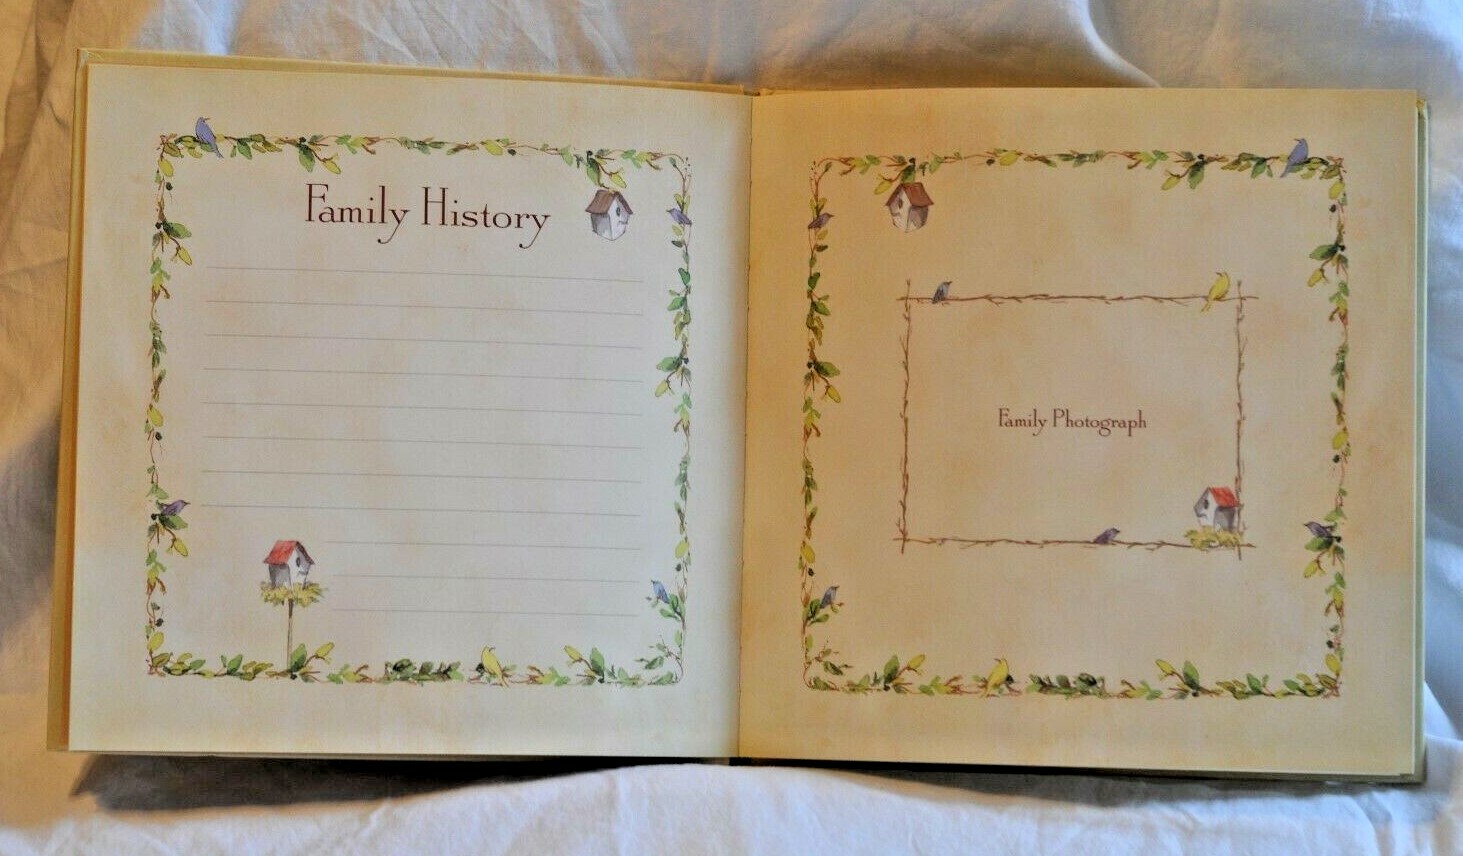 Family History
Family Photograph